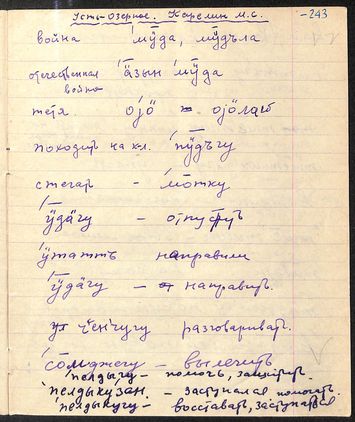 Усть-Озерное. Карелин М.С. -243
война мӱ̄да, мӱ̄дъла
отечественная а̋зын мӱ̄да
война
тетя оjӧ оjӧласъ
походить на хл. пӱ̄дъгу
стегать - мо̄тку
ӱ̄дӓгу - отпустить
ӱтаттъ направили
ӱ̄дӓгу - направить.
чэ̄нчугу разговаривать.
со̄мджегу - вылечить
пелдыгу - помочь, защитить.
пелдыкузан. - заступался помогать.
пелдыкугу - восставать, заступаться